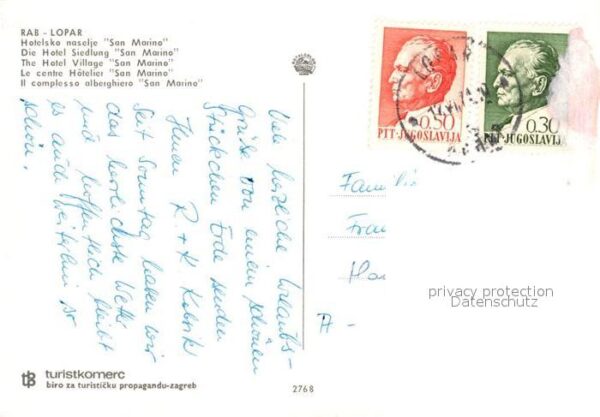 RAB - LOPAR
Hotelsko naselje "San Marino"
Die Hotel Siedlung "San Marino"
The Hotel Village "San Marino"
Le centre Hôtelier "San Marino"
Il complesso alberghiero "San Marino"
0.50
PTT-JUGOSLAVIJA
0.30
PTT-JUGOSLAVIJA
Viele herzliche Urlaubs-
grüße von einem schönen
Stückchen Erde senden
Ihnen R. + K.
Seit Sonntag haben wir
das herrlichste Wetter
und hoffentlich bleibt
es auch weiterhin so
schön.
Famili
Fra
A -
privacy protection
Datenschutz
tb turistkomerc
biro za turističku propagandu-zagreb
2768